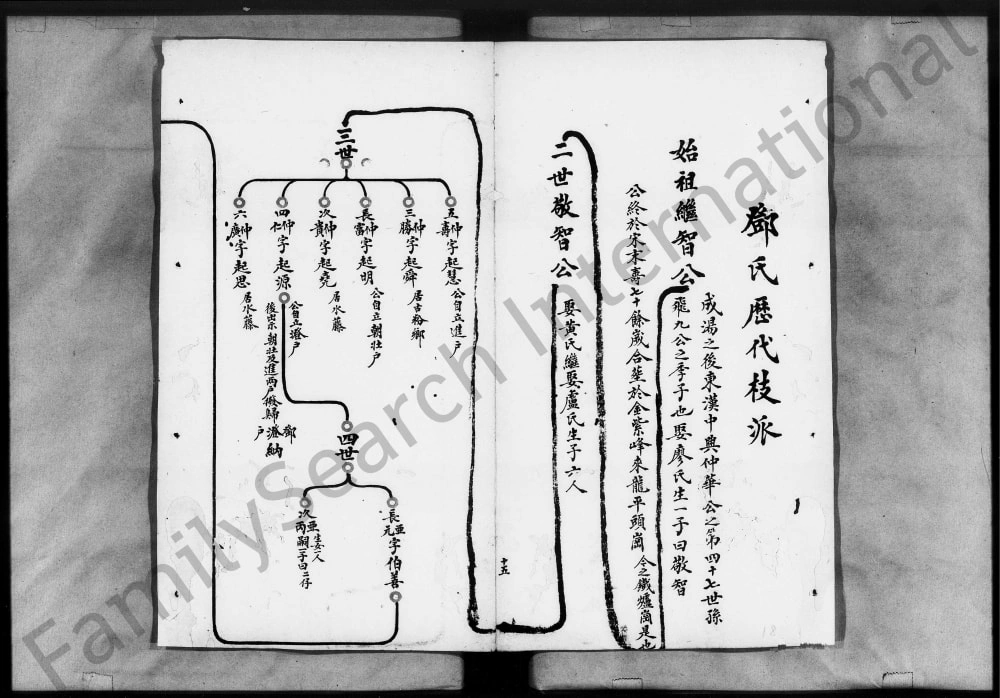 鄧氏歷代枝派
始祖繼智公
成湯之後東漢中興仲華公之第四十七世孫
飛九公之季子也娶廖氏生一子曰敬智
公終於宋末壽七十餘歲合塟於金紫峰來龍平頭崗 今之鐵爐崗是也
二世敬智公
娶黃氏繼娶盧氏生子六人
十五
三世
五仲壽字起慧
公自立進戶
三仲勝字起舜
居古粉鄉
長仲富字起明
公自立朝壯戶
次仲貴字起堯
居水藤
四仲仁字起源
公自立澄戶
後嵩宗朝壯及進兩戶撥歸鄧澄納戶
六仲廣字起思
居水藤
四世
長亞元字伯善
次亞丙
生女一人
嗣一子曰二仔
18
FamilySearch International